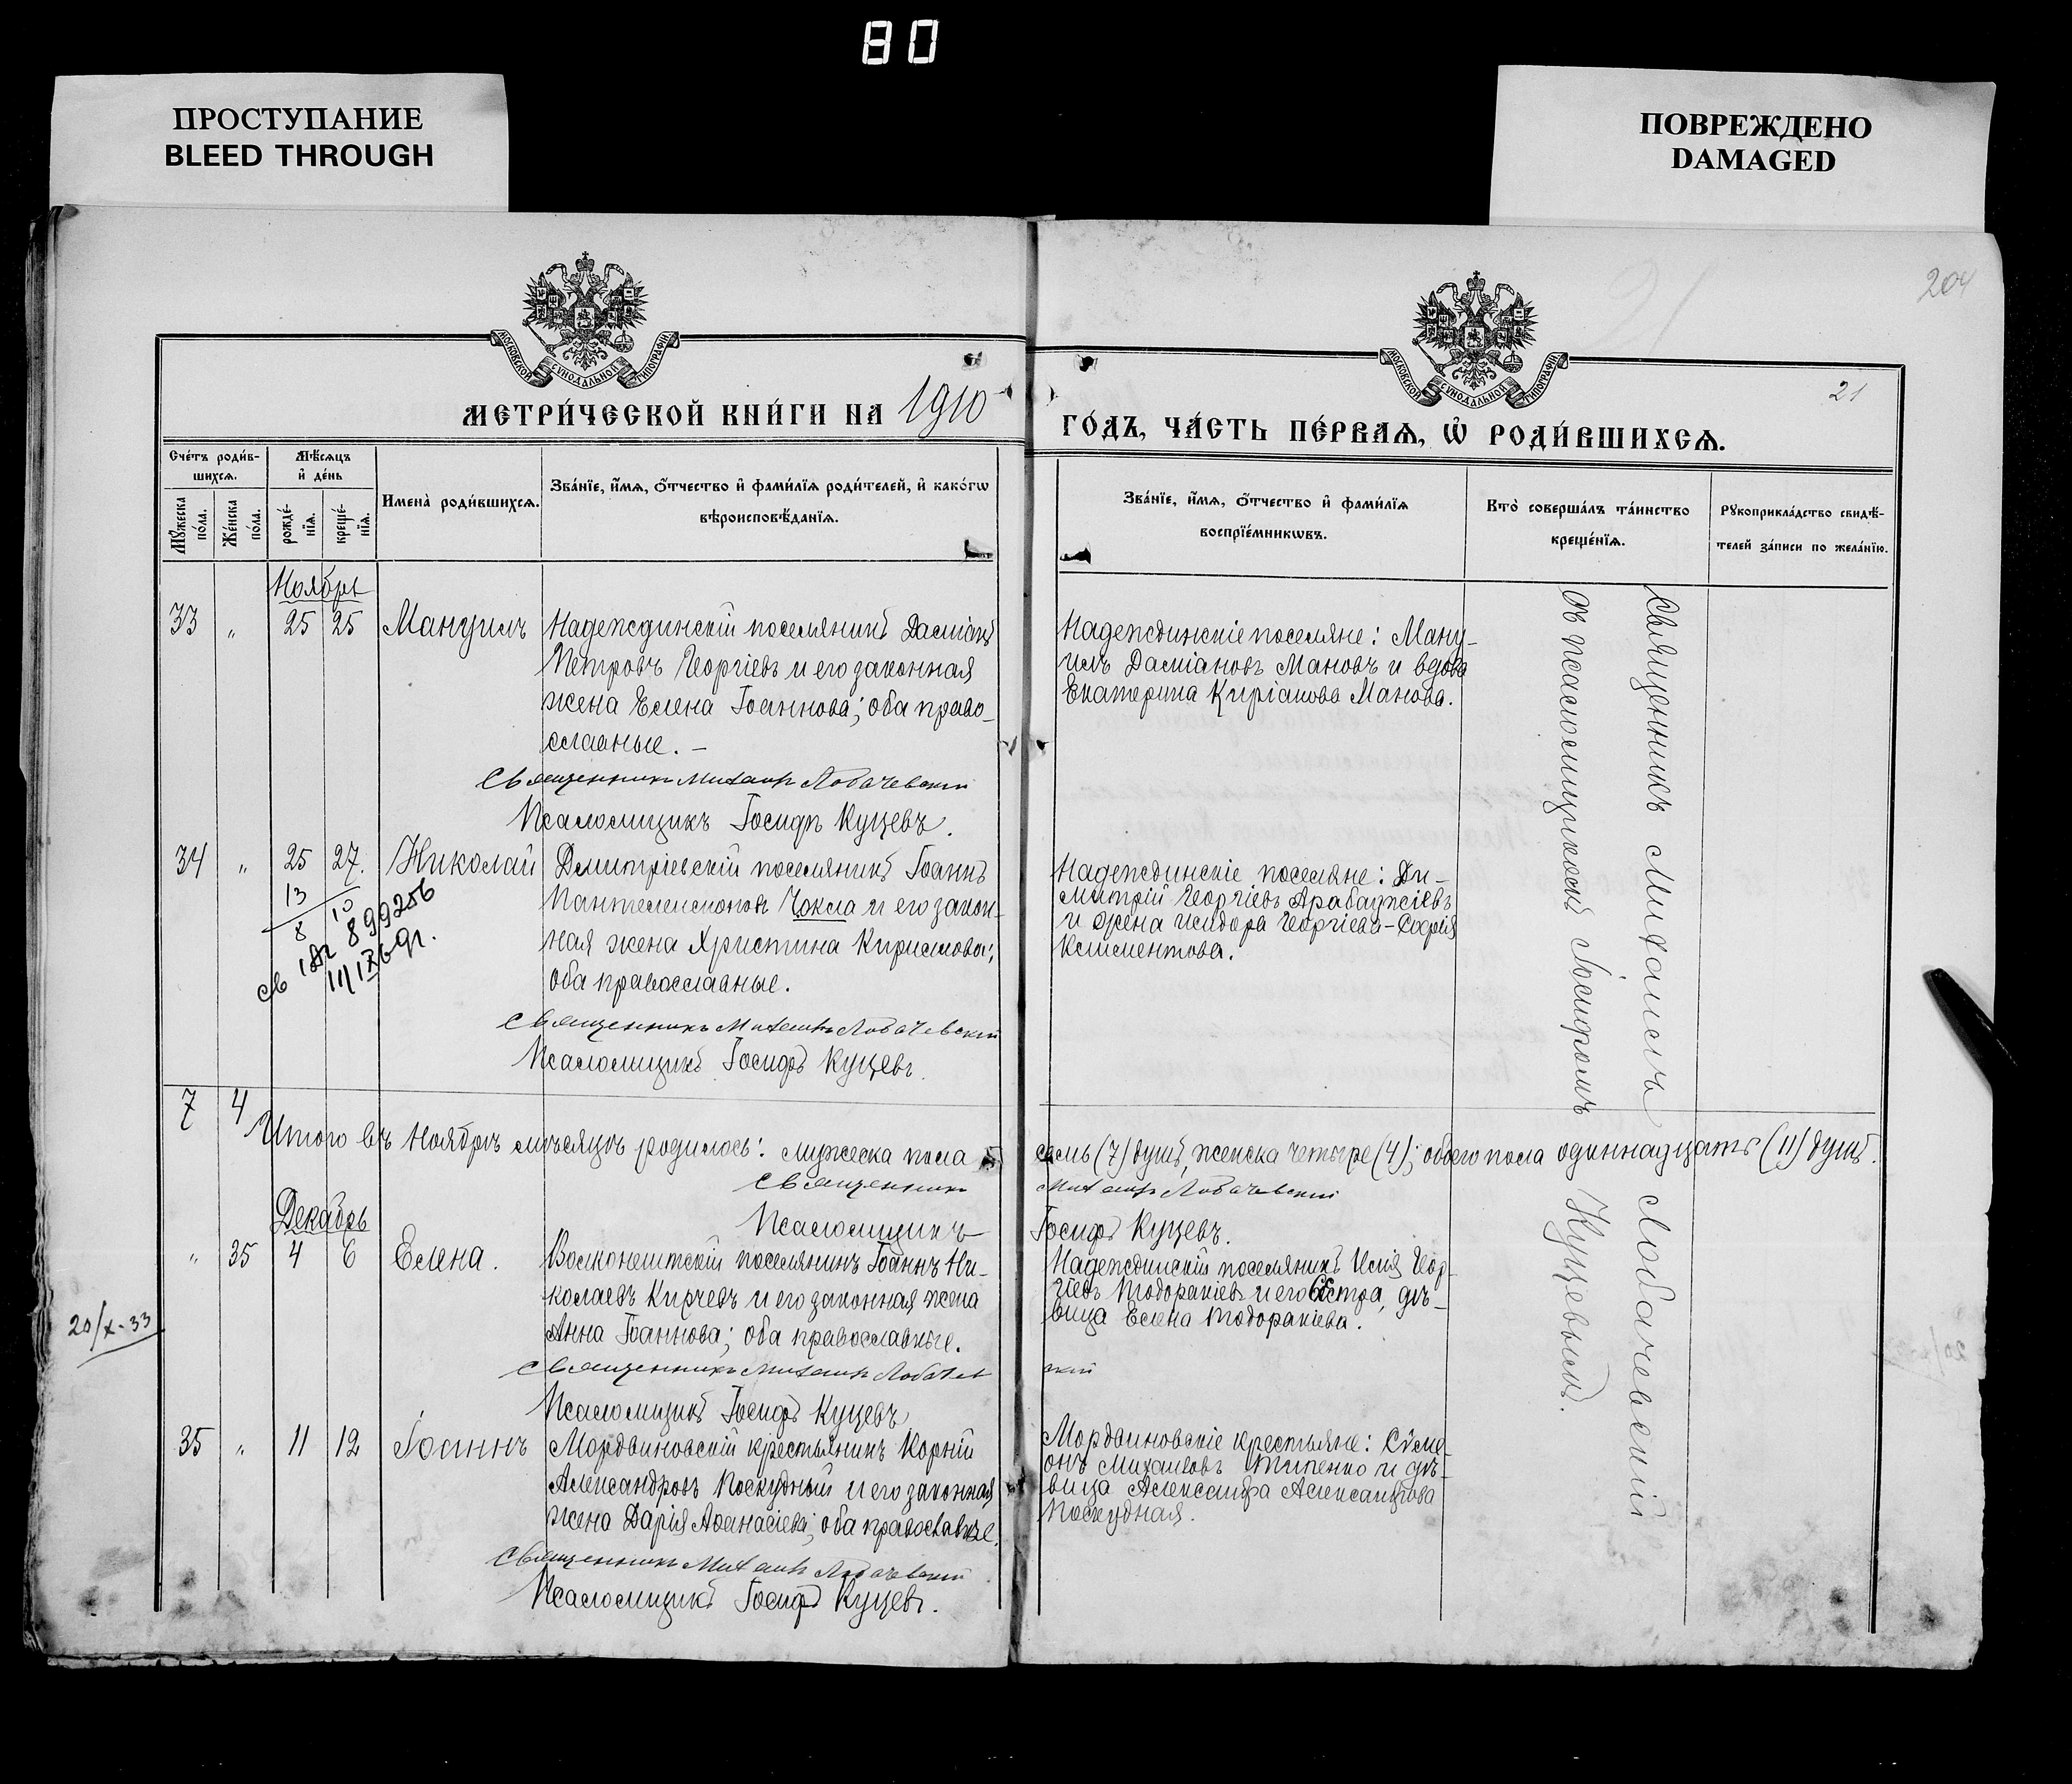 80
ПРОСТУПАНИЕ
BLEED THROUGH
ПОВРЕЖДЕНО
DAMAGED
204
21
21
МОСКОВСКОЙ СУНОДАЛЬНОЙ ТИПОГРАФІИ
МОСКОВСКОЙ СУНОДАЛЬНОЙ ТИПОГРАФІИ
МЕТРИ́ЧЕСКОЙ КНИ́ГИ НА 1910
ГО́ДЪ, ЧА́СТЬ ПЕ́РВАѦ, Ѡ РОДИ́ВШИХСѦ.
Сче́тъ роди́в-
шихсѧ.
Мꙋ́жеска
по́ла.
Же́нска
по́ла.
Мѣ́сѧцъ
и҆ де́нь
рожде́-
нїѧ.
креще́-
нїѧ.
Имена̀ роди́вшихсѧ.
Зва́нїе, и҆́мѧ, ѻ҆́тчество и҆ фами́лїѧ роди́телей, и҆ како́гѡ
вѣроисповѣ́данїѧ.
Зва́нїе, и҆́мѧ, ѻ҆́тчество и҆ фами́лїѧ
воспрїе́мникѡвъ.
Кто̀ соверша́лъ та́инство
креще́нїѧ.
Рꙋкоприкла́дство свидѣ́-
телей за́писи по жела́нїю.
Ноябрь
33 " 25 25 Мануилъ
Надеждинскій поселянинъ Даміанъ
Петровъ Георгіевъ и его законная
жена Елена Іоаннова; оба право-
славные. –
Священникъ Михаилъ Лобачевскій
Псаломщикъ Іосифъ Куцевъ.
Надеждинскіе поселяне: Ману-
илъ Даміановъ Мановъ и вдова
Екатерина Киріакова Манова.
34 " 25 27. Николай
13
8 10
св 899256
Дмитріевскій поселянинъ Іоаннъ
Пантелеимоновъ Чокла и его закон-
ная жена Христина Кириллова;
оба православные.
Священникъ Михаилъ Лобачевскій
Псаломщикъ Іосифъ Куцевъ.
Надеждинскіе поселяне: Ди-
митрій Георгіевъ Арабаджіевъ
и жена Исидора Георгіева - Софія
Климентова.
7 4
Итого въ Ноябрѣ мѣсяцѣ родилось: мужеска пола семь (7) душъ, женска четыре (4); обоего пола одиннадцать (11) душъ.
Священникъ Михаилъ Лобачевскій
Псаломщикъ Іосифъ Куцевъ.
Декабрь
" 35 4 6 Елена.
20/X-33
Волконештскій поселянинъ Іоаннъ Ни-
колаевъ Кирчевъ и его законная жена
Анна Іоаннова; оба православные.
Священникъ Михаилъ Лобачевскій
Псаломщикъ Іосифъ Куцевъ
Надеждинскій поселянинъ Илія Геор-
гіевъ Тодоракіевъ и его сестра, дѣ-
вица Елена Тодоракіева.
35 " 11 12 Іоаннъ
Мордвиновскій крестьянинъ Корній
Александровъ Поскудный и его законная
жена Дарія Аѳанасіева; оба православные.
Священникъ Михаилъ Лобачевскій
Псаломщикъ Іосифъ Куцевъ.
Мордвиновскіе крестьяне: Сѵме-
онъ Михаиловъ Типенко и дѣ-
вица Александра Александрова
Поскудная.
Священникъ Михаилъ Лобачевскій
съ псаломщикомъ Іосифомъ Куцевымъ.